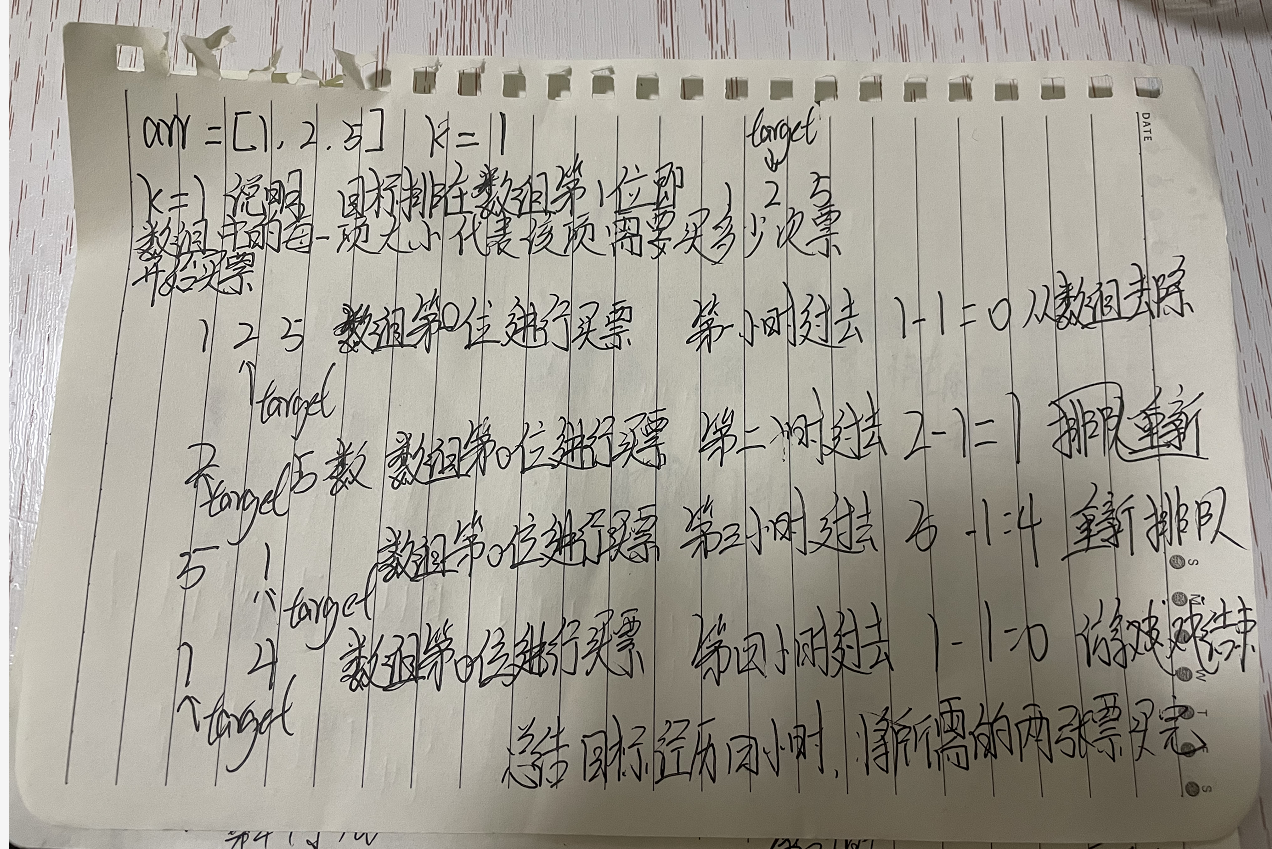 arr = [1, 2, 5]  k = 1
target
k=1 说明 目标排在数组第1位即 1 2 5
数组中的每一项大小代表该项需要买多少次票
开始买票
1 2 5 数组第0位进行买票 第一小时过去 1-1=0 从数组去除
target
2 5 数 数组第0位进行买票 第二小时过去 2-1=1 排队重新
target
5 1 数组第0位进行买票 第三小时过去 5-1=4 重新排队
target
1 4 数组第0位进行买票 第四小时过去 1-1=0 结束
target
总结 目标经历四小时, 将所需的两张票买完
DATE
S
M
W
T
F
S